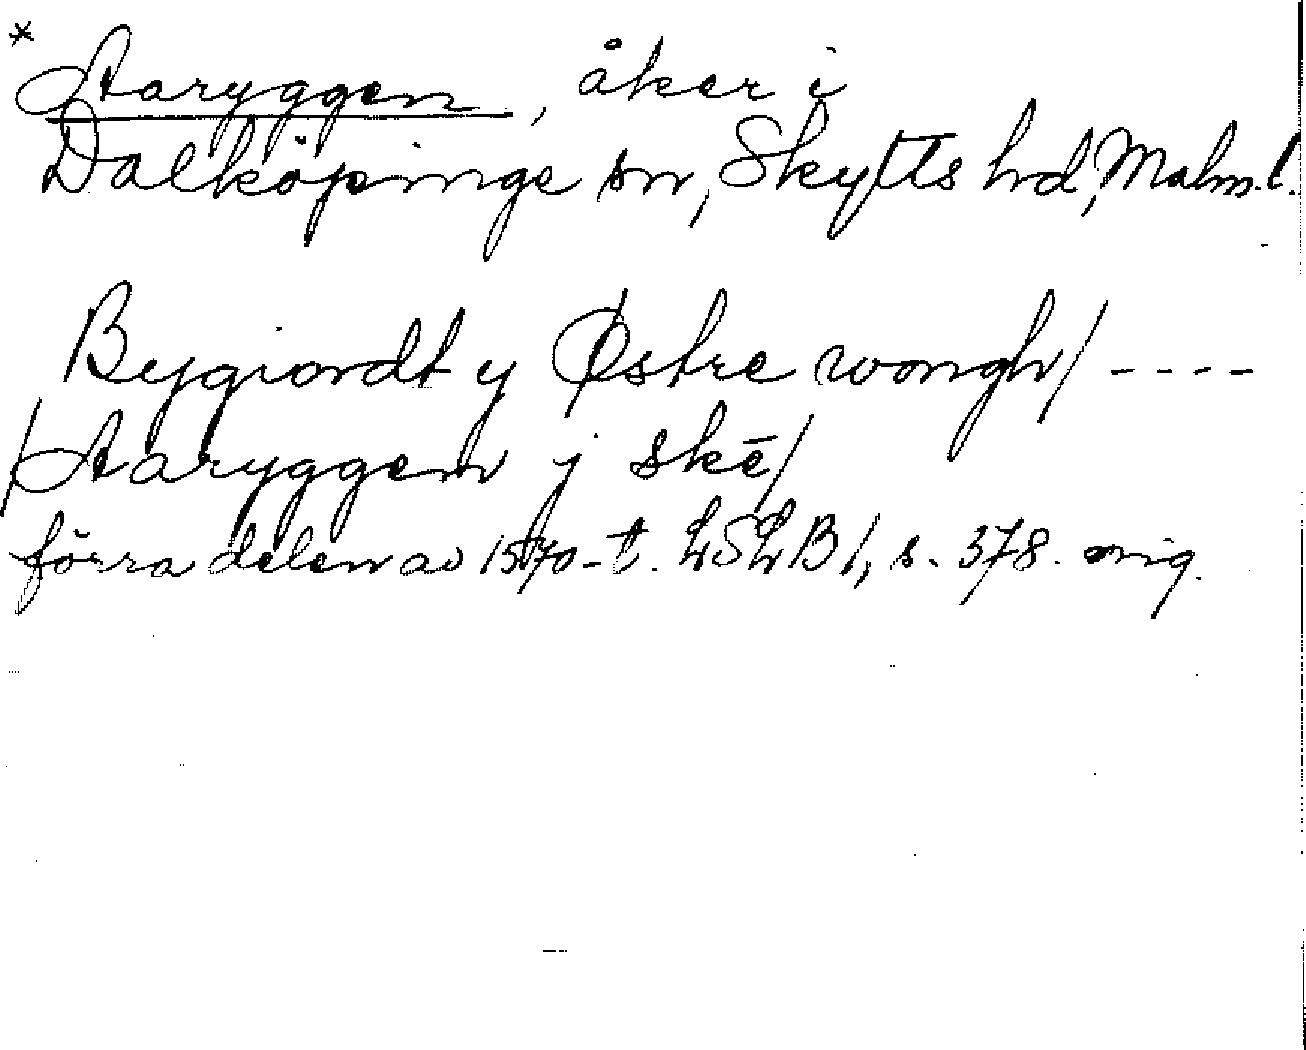 * Aaryggen, åker i
Dalköpinge sn, Skytts hd, Malm. l.
Bygiordt y Østre wongh/ ----
/Aaryggen j skē/
förra delen av 1570-t. LSLB 1, s. 378. orig.